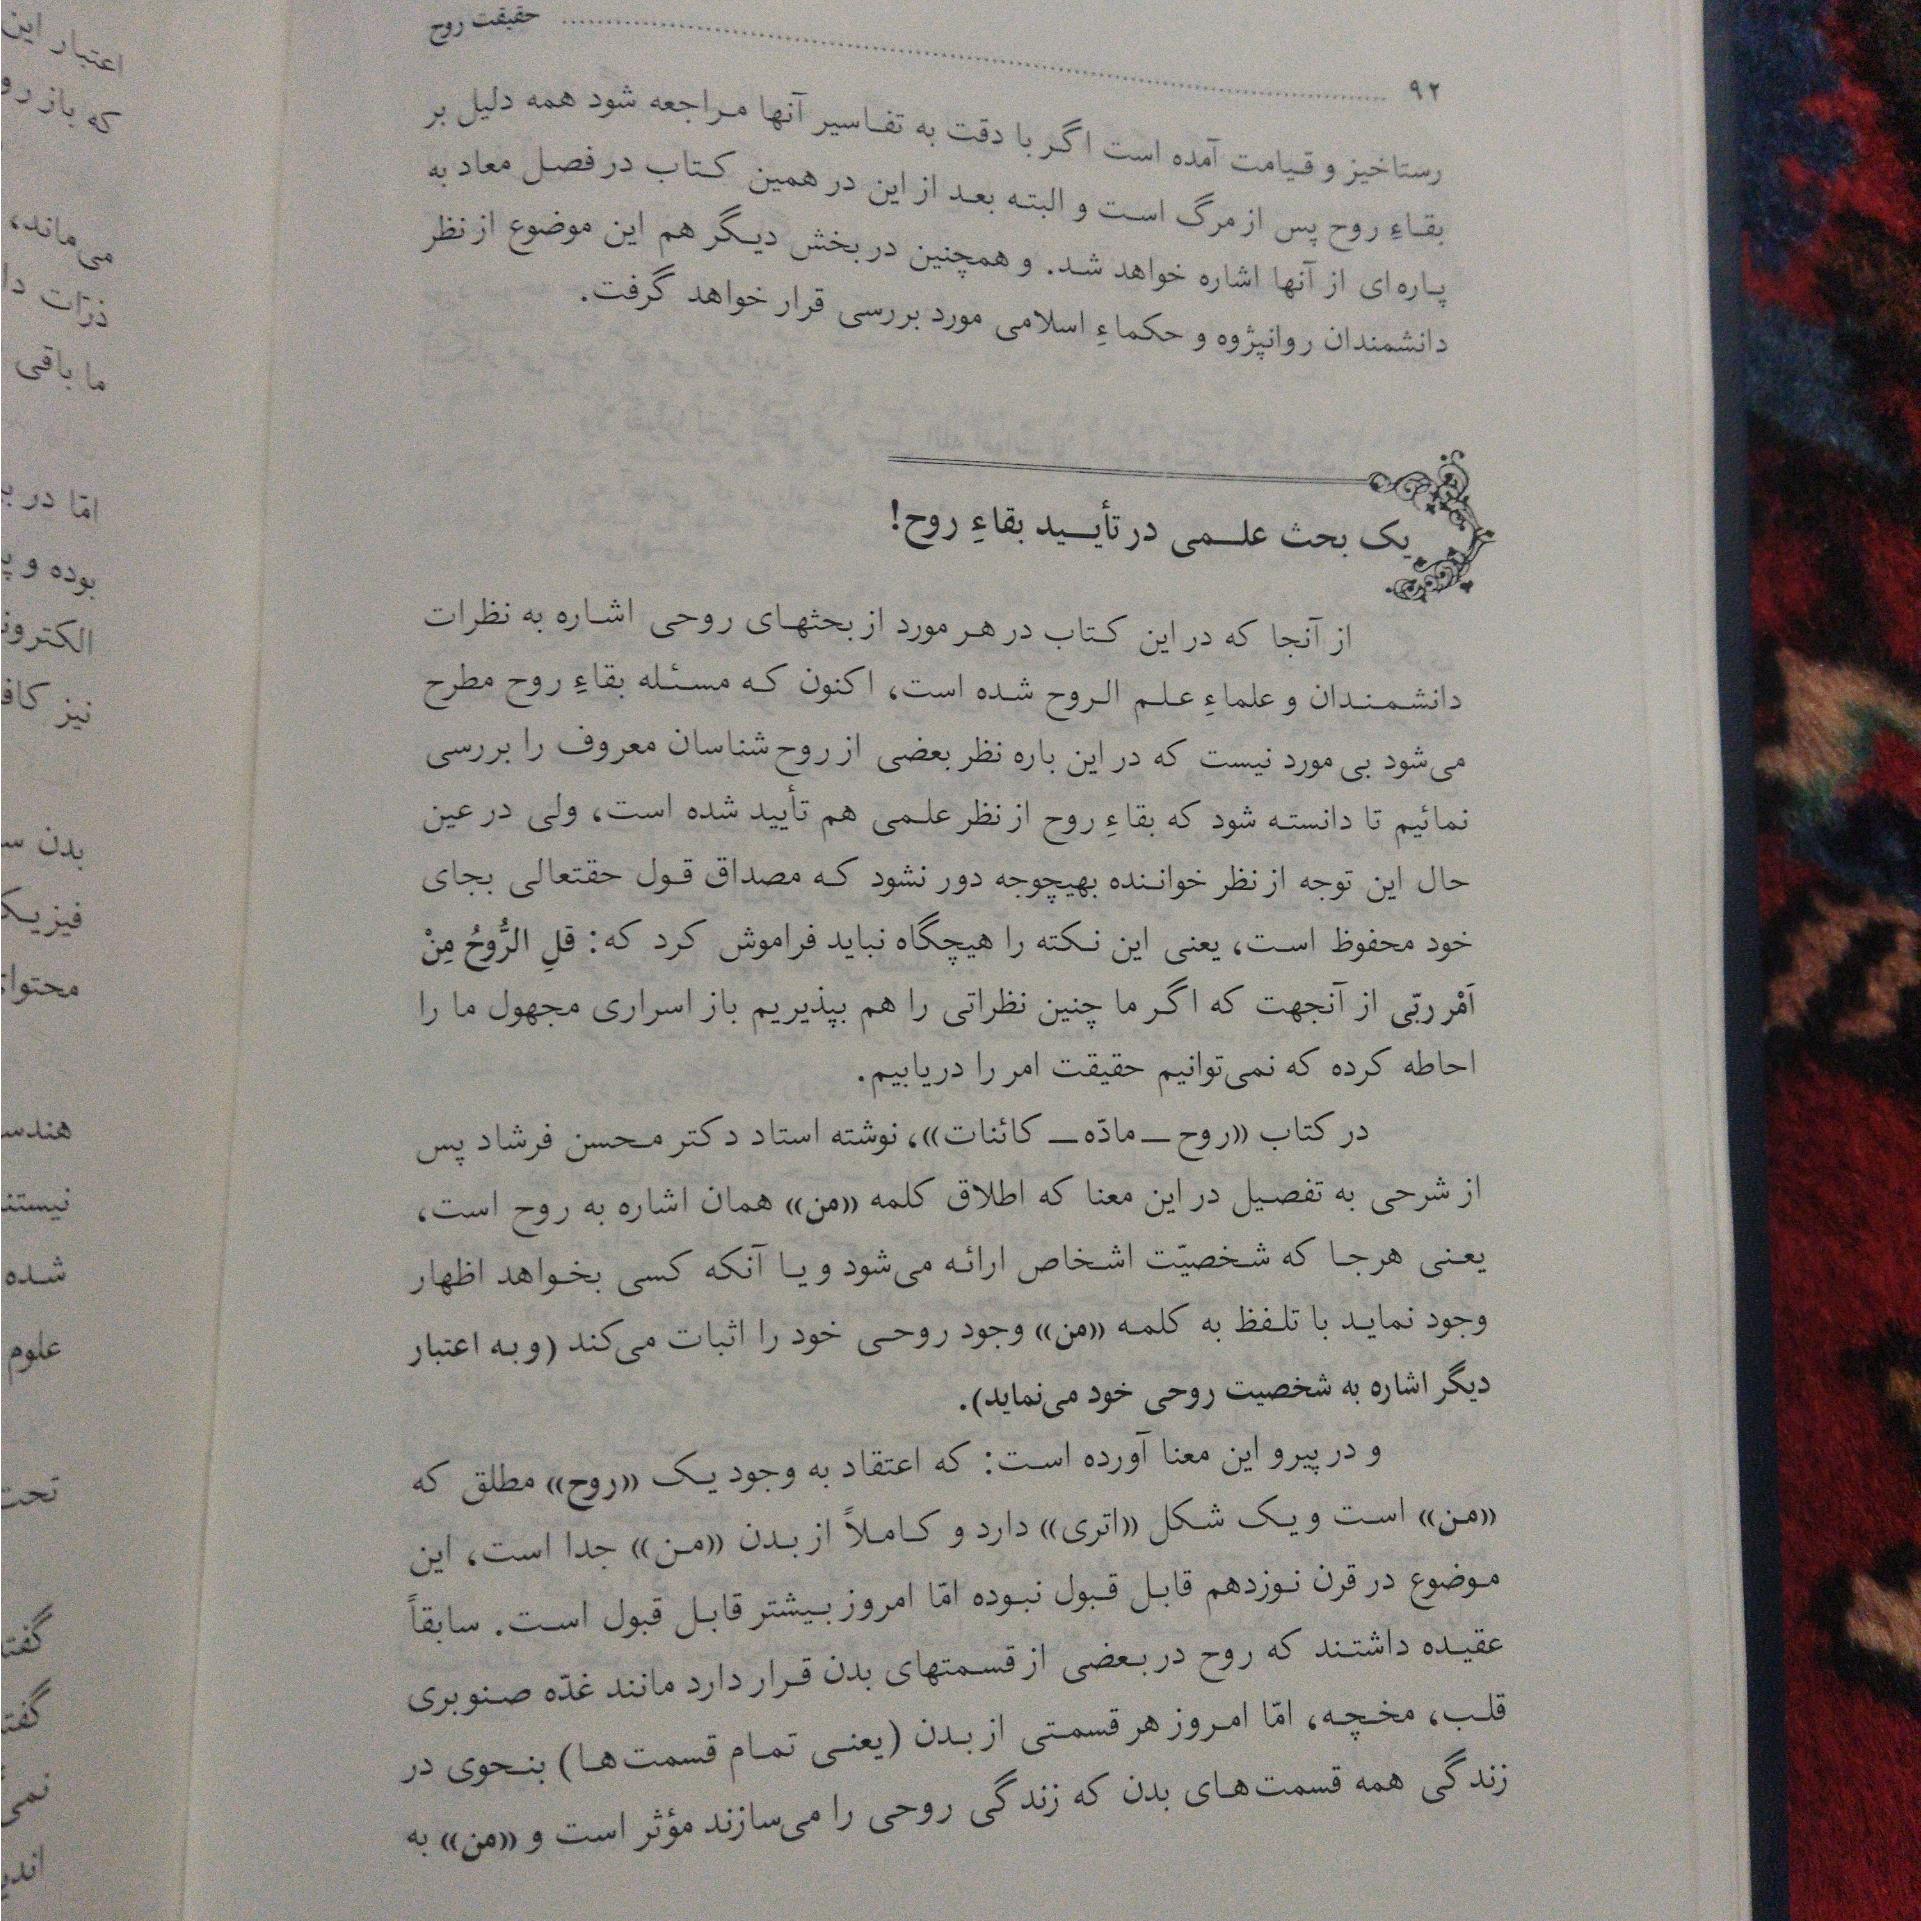 ۹۲ ........ حقیقت روح
رستاخیز و قیامت آمده است اگر با دقت به تفاسیر آنها مراجعه شود همه دلیل بر
بقاءِ روح پس از مرگ است و البته بعد از این در همین کتاب در فصل معاد به
پاره‌ای از آنها اشاره خواهد شد. و همچنین در بخش دیگر هم این موضوع از نظر
دانشمندان روانپژوه و حکماءِ اسلامی مورد بررسی قرار خواهد گرفت.
یک بحث علمی در تأیید بقاءِ روح!
از آنجا که در این کتاب در هر مورد از بحثهای روحی اشاره به نظرات
دانشمندان و علماءِ علم الروح شده است، اکنون که مسئله بقاءِ روح مطرح
می‌شود بی مورد نیست که در این باره نظر بعضی از روح شناسان معروف را بررسی
نمائیم تا دانسته شود که بقاءِ روح از نظر علمی هم تأیید شده است، ولی در عین
حال این توجه از نظر خواننده بهیچوجه دور نشود که مصداق قول حقتعالی بجای
خود محفوظ است، یعنی این نکته را هیچگاه نباید فراموش کرد که: قلِ الرُّوحُ مِنْ
اَمْر ربّی از آنجهت که اگر ما چنین نظراتی را هم بپذیریم باز اسراری مجهول ما را
احاطه کرده که نمی‌توانیم حقیقت امر را دریابیم.
در کتاب «روح ـ مادّه ـ کائنات»، نوشته استاد دکتر محسن فرشاد پس
از شرحی به تفصیل در این معنا که اطلاق کلمه «من» همان اشاره به روح است،
یعنی هرجا که شخصیّت اشخاص ارائه می‌شود و یا آنکه کسی بخواهد اظهار
وجود نماید با تلفظ به کلمه «من» وجود روحی خود را اثبات می‌کند (و به اعتبار
دیگر اشاره به شخصیت روحی خود می‌نماید).
و در پیرو این معنا آورده است: که اعتقاد به وجود یک «روح» مطلق که
«من» است و یک شکل «اتری» دارد و کاملاً از بدن «من» جدا است، این
موضوع در قرن نوزدهم قابل قبول نبوده امّا امروز بیشتر قابل قبول است. سابقاً
عقیده داشتند که روح در بعضی از قسمتهای بدن قرار دارد مانند غدّه صنوبری
قلب، مخچه، امّا امروز هر قسمتی از بدن (یعنی تمام قسمت‌ها) بنحوی در
زندگی همه قسمت‌های بدن که زندگی روحی را می‌سازند مؤثر است و «من» به
اعتبار این
که باز رو
می‌ماند،
ذرّات
ما باقی
امّا در
بوده و
نیز
بدن
نیستند
شده
علوم